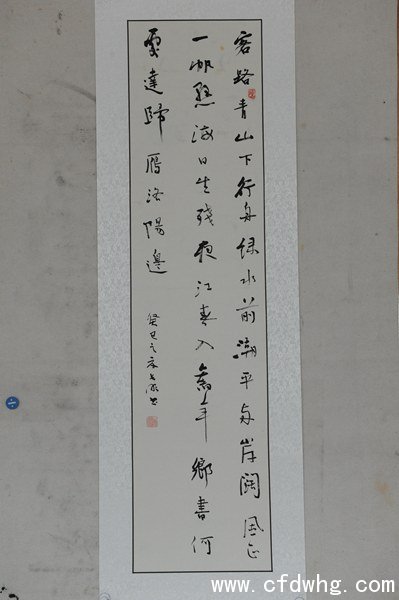 客路青山下行舟綠水前潮平两岸闊風正
一帆懸海日生殘夜江春入舊年鄉書何
處達歸雁洛陽邊
癸巳之
www.cfdwhg.com